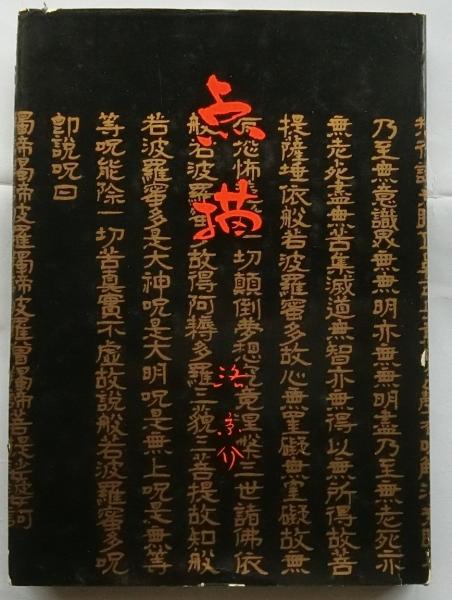 点描
洛 京介
乃至無意識界無無明亦無無明盡乃至無老死亦
無老死盡無苦集滅道無智亦無得以無所得故菩
提薩埵依般若波羅蜜多故心無罣礙無罣礙故無
有恐怖 一切顛倒夢想究竟涅槃三世諸佛依
般若波羅 故得阿耨多羅三藐三菩提故知般
若波羅蜜多是大神呪是大明呪是無上呪是無等
等呪能除一切苦真實不虚故說般若波羅蜜多呪
即說呪曰
羯諦羯諦波羅羯諦波羅僧羯諦菩提